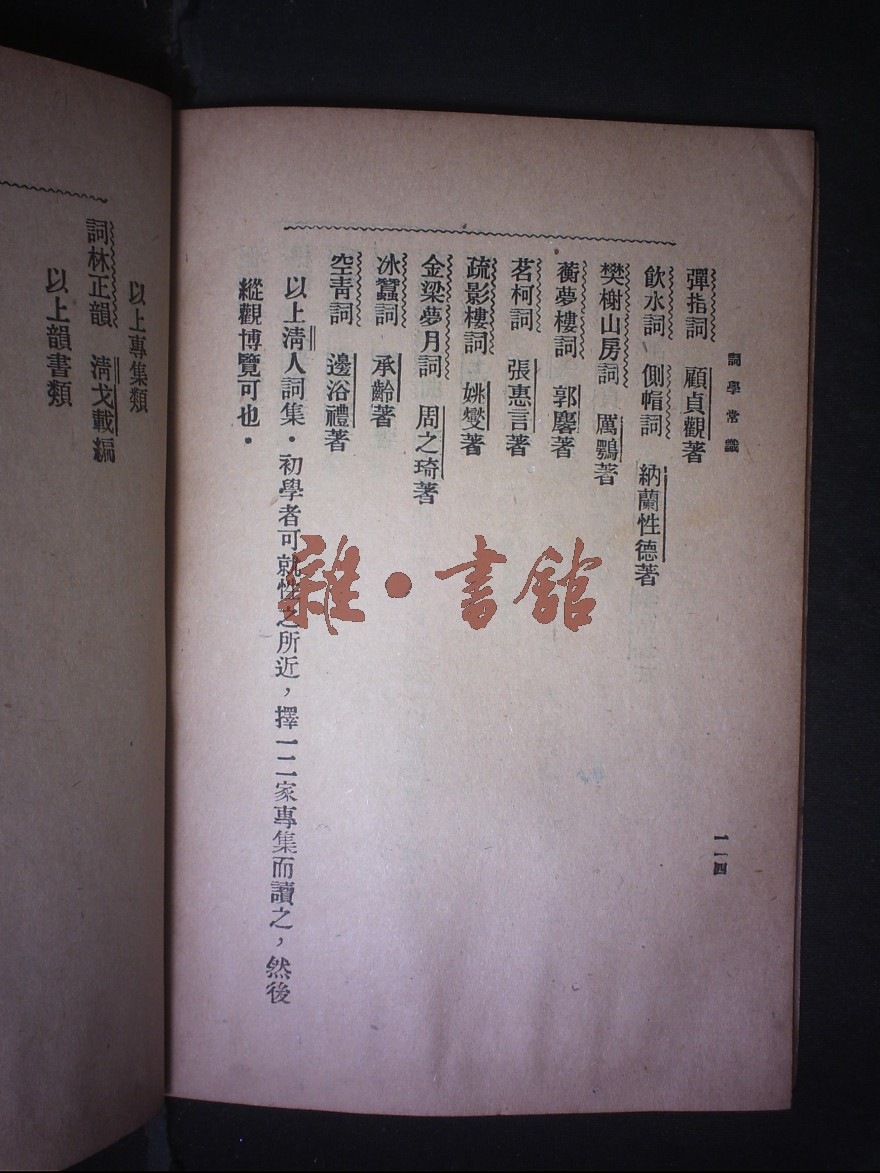 詞學常識
一一四
彈指詞　顧貞觀著
飲水詞　側帽詞　納蘭性德著
樊榭山房詞　厲鶚著
蘅夢樓詞　郭麐著
茗柯詞　張惠言著
疏影樓詞　姚燮著
金梁夢月詞　周之琦著
冰蠶詞　承齡著
空青詞　邊浴禮著
以上清人詞集・初學者可就性之所近，擇一二家專集而讀之，然後
縱觀博覽可也・
以上專集類
詞林正韻　清戈載編
以上韻書類
雜・書館